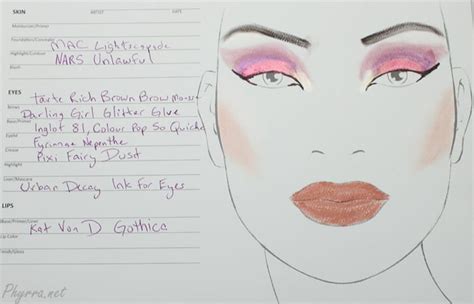 SKIN ARTIST DATE
Moisturizer/Primer
Foundation/Concealer
MAC Lightscapade
Highlight/Contour
NARS Unlawful
Blush
EYES
Tarte Rich Brown Brow Mousse
Brows
Darling Girl Glitter Glue
Base/Primer
Inglot 81, Colour Pop So Quiche
Eyelid
Fyrinnae Nepenthe
Crease
Pixi Fairy Dust
Highlight
Liner/Mascara
Urban Decay Ink For Eyes
LIPS
Base/Primer/Liner
Kat Von D Gothica
Lip Color
Trendy/Gloss
Phyrra.net